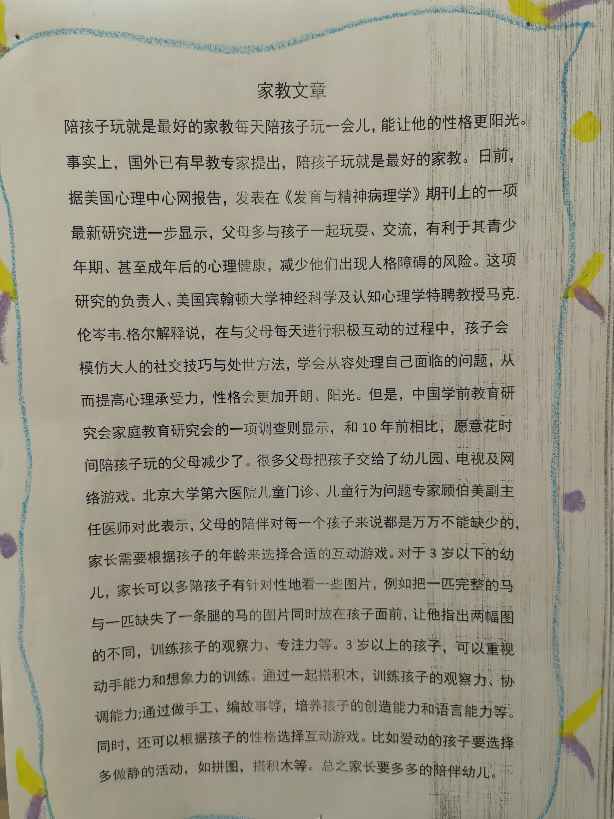 家教文章
陪孩子玩就是最好的家教每天陪孩子玩一会儿，能让他的性格更阳光。
事实上，国外已有早教专家提出，陪孩子玩就是最好的家教。日前，
据美国心理中心网报告，发表在《发育与精神病理学》期刊上的一项
最新研究进一步显示，父母多与孩子一起玩耍、交流，有利于其青少
年期、甚至成年后的心理健康，减少他们出现人格障碍的风险。这项
研究的负责人、美国宾翰顿大学神经科学及认知心理学特聘教授马克.
伦岑韦.格尔解释说，在与父母每天进行积极互动的过程中，孩子会
模仿大人的社交技巧与处世方法，学会从容处理自己面临的问题，从
而提高心理承受力，性格会更加开朗、阳光。但是，中国学前教育研
究会家庭教育研究会的一项调查则显示，和 10 年前相比，愿意花时
间陪孩子玩的父母减少了。很多父母把孩子交给了幼儿园、电视及网
络游戏。北京大学第六医院儿童门诊、儿童行为问题专家顾伯美副主
任医师对此表示，父母的陪伴对每一个孩子来说都是万万不能缺少的，
家长需要根据孩子的年龄来选择合适的互动游戏。对于 3 岁以下的幼
儿，家长可以多陪孩子有针对性地看一些图片，例如把一匹完整的马
与一匹缺失了一条腿的马的图片同时放在孩子面前，让他指出两幅图
的不同，训练孩子的观察力、专注力等。3 岁以上的孩子，可以重视
动手能力和想象力的训练。通过一起搭积木，训练孩子的观察力、协
调能力;通过做手工、编故事等，培养孩子的创造能力和语言能力等。
同时，还可以根据孩子的性格选择互动游戏。比如爱动的孩子要选择
多做静的活动，如拼图，搭积木等。总之家长要多多的陪伴幼儿。